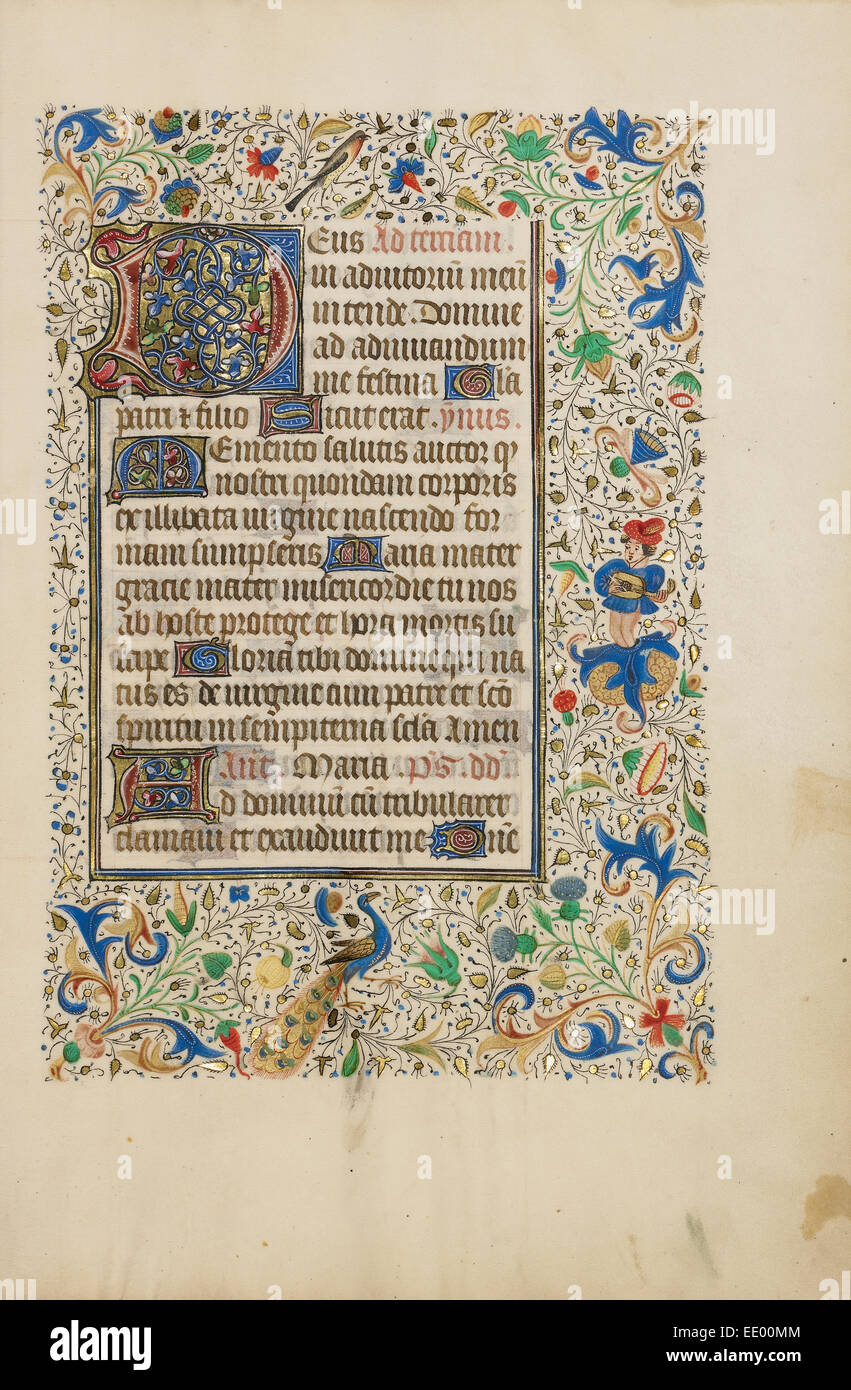 Deus Ad terciam.
in adiutoriũ meũ
intende. Domine
ad adiuuandum
me festina Gl̃a
patri ⁊ filio Sicut erat. ymus.
Memento salutis auctor q̃
nostri quondam corporis
ex illibata uirgine nascendo for
mam sumpseris Maria mater
gracie mater misericordie tu nos
ab hoste protege et hora mortis su
scipe Gloria tibi domine qui na
tus es de uirgine cum patre et sc̃o
spiritu in sempiterna sec̃la Amen
Añt. Maria. P̃s. dd̃
Ad dominũ cũ tribularer
clamaui et exaudiuit me Dñe
alamy
a
alamy stock photo
EE00MM
www.alamy.com